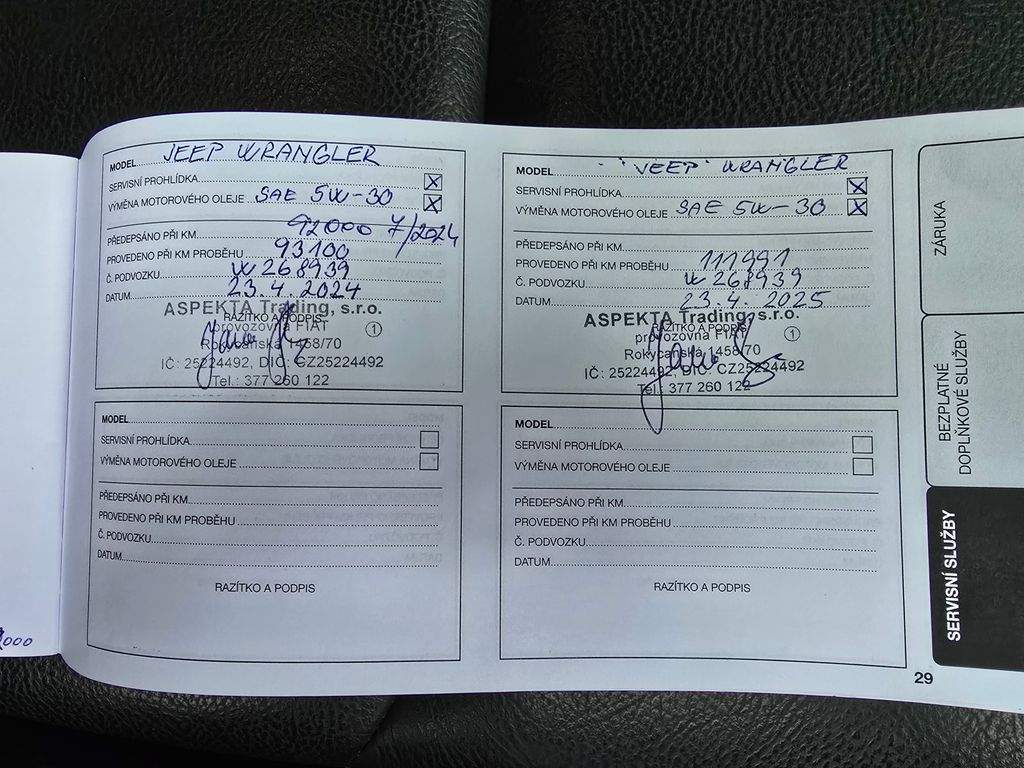 MODEL JEEP WRANGLER
SERVISNÍ PROHLÍDKA X
VÝMĚNA MOTOROVÉHO OLEJE SAE 5W-30 X
PŘEDEPSÁNO PŘI KM 92000 7/2024
PROVEDENO PŘI KM PROBĚHU 93100
Č. PODVOZKU W268939
DATUM 23.4.2024
ASPEKTA Trading, s.r.o.
RAZÍTKO A PODPIS
provozovna FIAT 1
Rokycanská 1458/70
IČ: 25224492, DIČ: CZ25224492
Tel.: 377 260 122
MODEL
SERVISNÍ PROHLÍDKA
VÝMĚNA MOTOROVÉHO OLEJE
PŘEDEPSÁNO PŘI KM
PROVEDENO PŘI KM PROBĚHU
Č. PODVOZKU
DATUM
RAZÍTKO A PODPIS
MODEL JEEP WRANGLER
SERVISNÍ PROHLÍDKA X
VÝMĚNA MOTOROVÉHO OLEJE SAE 5W-30 X
PŘEDEPSÁNO PŘI KM
PROVEDENO PŘI KM PROBĚHU 111991
Č. PODVOZKU W268939
DATUM 23.4.2025
ASPEKTA Trading, s.r.o.
RAZÍTKO A PODPIS
provozovna FIAT 1
Rokycanská 1458/70
IČ: 25224492, DIČ: CZ25224492
Tel.: 377 260 122
MODEL
SERVISNÍ PROHLÍDKA
VÝMĚNA MOTOROVÉHO OLEJE
PŘEDEPSÁNO PŘI KM
PROVEDENO PŘI KM PROBĚHU
Č. PODVOZKU
DATUM
RAZÍTKO A PODPIS
ZÁRUKA
BEZPLATNÉ
DOPLŇKOVÉ SLUŽBY
SERVISNÍ SLUŽBY
29